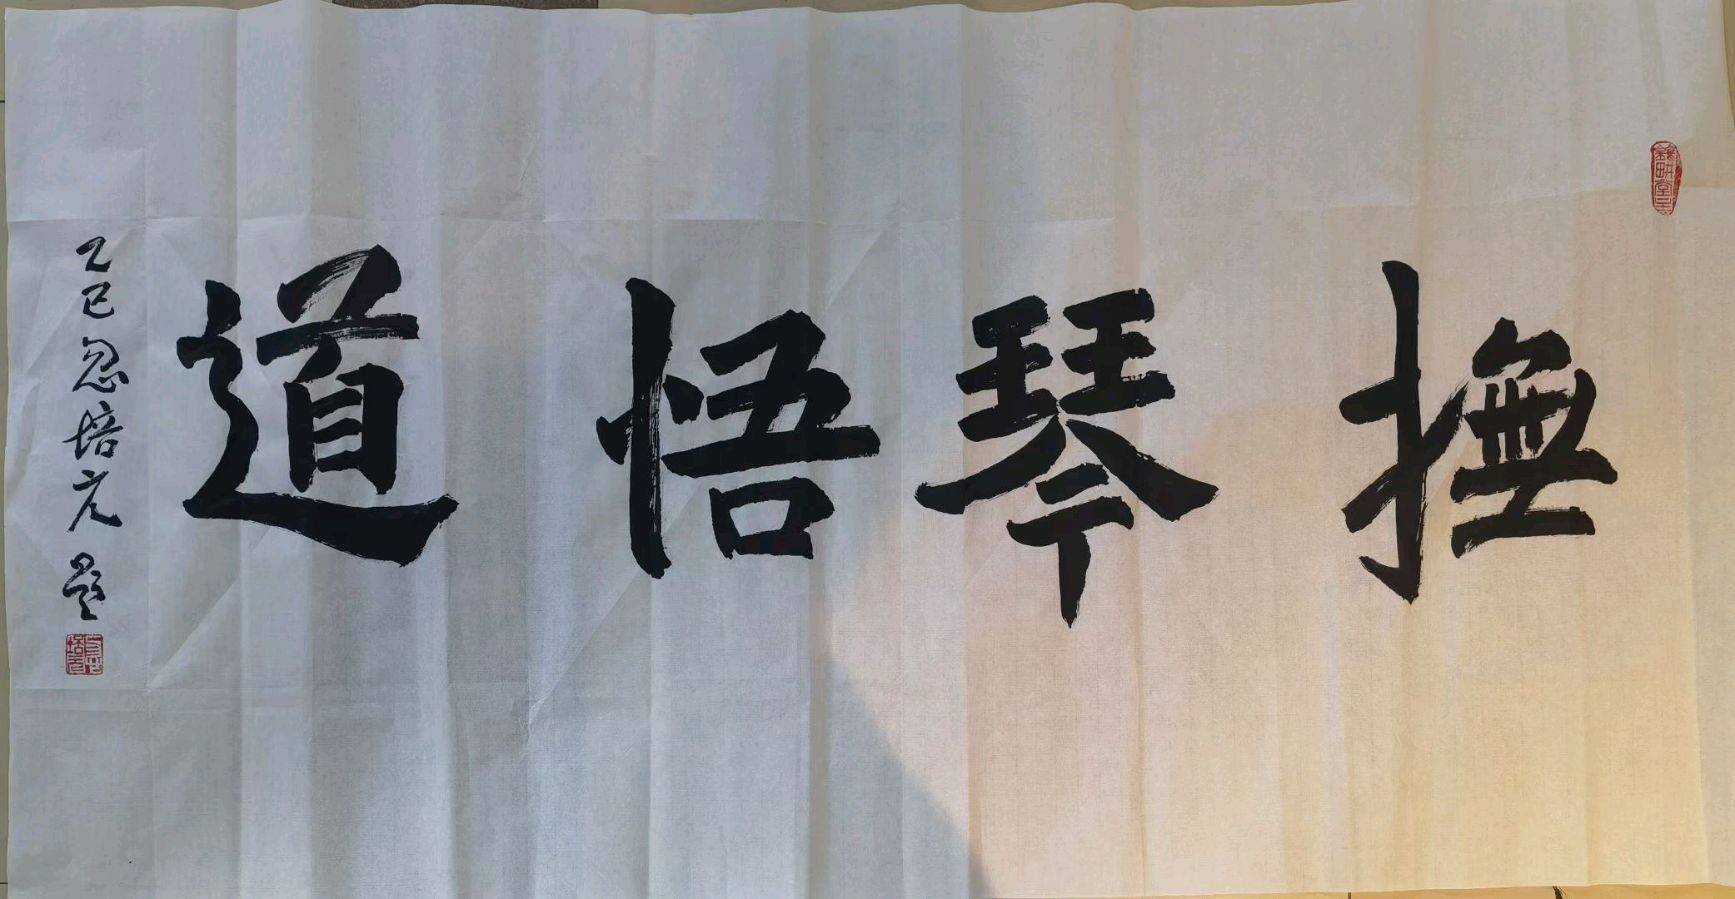 撫琴悟道
乙巳忽培元題